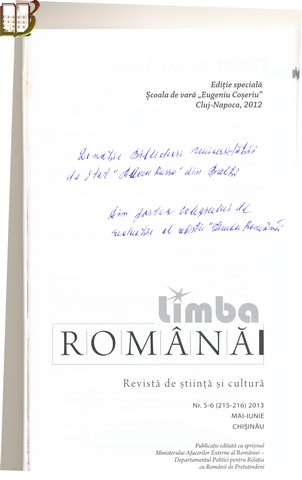 Ediție specială
Școala de vară „Eugeniu Coșeriu”
Cluj-Napoca, 2012
Donație Bibliotecii Universității
de Stat "Alecu Russo" din Bălți
Din partea colegiului de
redacție al revistei "Limba Română"
limba
ROMÂNĂ
Revistă de știință și cultură
Nr. 5-6 (215-216) 2013
MAI-IUNIE
CHIȘINĂU
Publicație editată cu sprijinul
Ministerului Afacerilor Externe al României –
Departamentul Politici pentru Relația
cu Românii de Pretutindeni